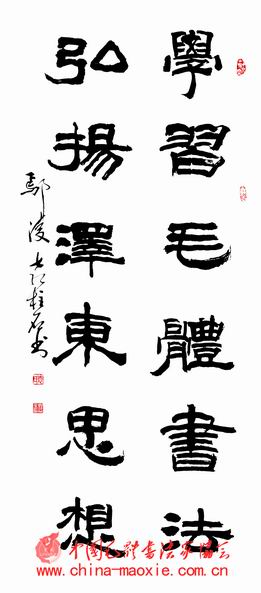 學習毛體書法
弘揚澤東思想
鄢陵
中国毛体书法家协会
www.china-maoxie.com.cn